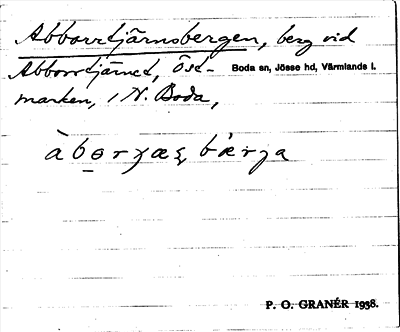 Abborrtjärnsbergen, berg vid
Abborrtjärnet, Öst-
Boda sn, Jösse hd, Värmlands l.
marken, i N. Boda,
P. O. GRANÉR 1938.